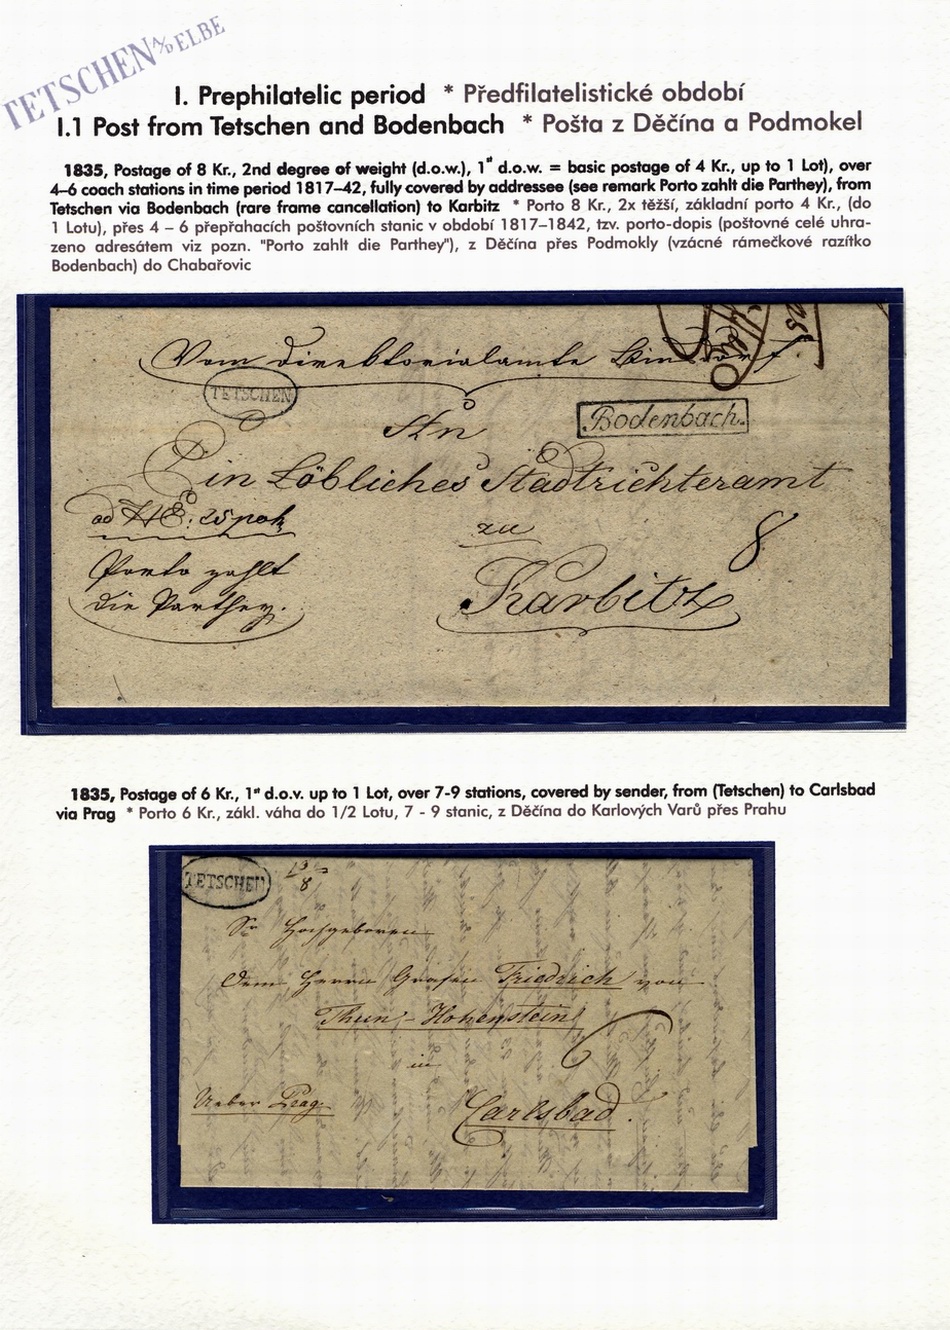 TETSCHEN A/D ELBE
I. Prephilatelic period * Předfilatelistické období
I.1 Post from Tetschen and Bodenbach * Pošta z Děčína a Podmokel
1835, Postage of 8 Kr., 2nd degree of weight (d.o.w.), 1st d.o.w. = basic postage of 4 Kr., up to 1 Lot), over
4–6 coach stations in time period 1817–42, fully covered by addressee (see remark Porto zahlt die Parthey), from
Tetschen via Bodenbach (rare frame cancellation) to Karbitz * Porto 8 Kr., 2x těžší, základní porto 4 Kr., (do
1 Lotu), přes 4 – 6 přepřahacích poštovních stanic v období 1817–1842, tzv. porto-dopis (poštovné celé uhra-
zeno adresátem viz pozn. "Porto zahlt die Parthey"), z Děčína přes Podmokly (vzácné rámečkové razítko
Bodenbach) do Chabařovic
Vom Direktorialamte
TETSCHEN
An
Bodenbach.
Ein Löbliches Stadtrichteramt
zu
8
Porto zahlt
die Parthey.
Karbitz
1835, Postage of 6 Kr., 1st d.o.v. up to 1 Lot, over 7-9 stations, covered by sender, from (Tetschen) to Carlsbad
via Prag * Porto 6 Kr., zákl. váha do 1/2 Lotu, 7 - 9 stanic, z Děčína do Karlových Varů přes Prahu
TETSCHEN
Sr Hochgeboren
dem Herrn Grafen Friedrich von
Thun-Hohenstein
in
Ueber Prag.
Carlsbad.